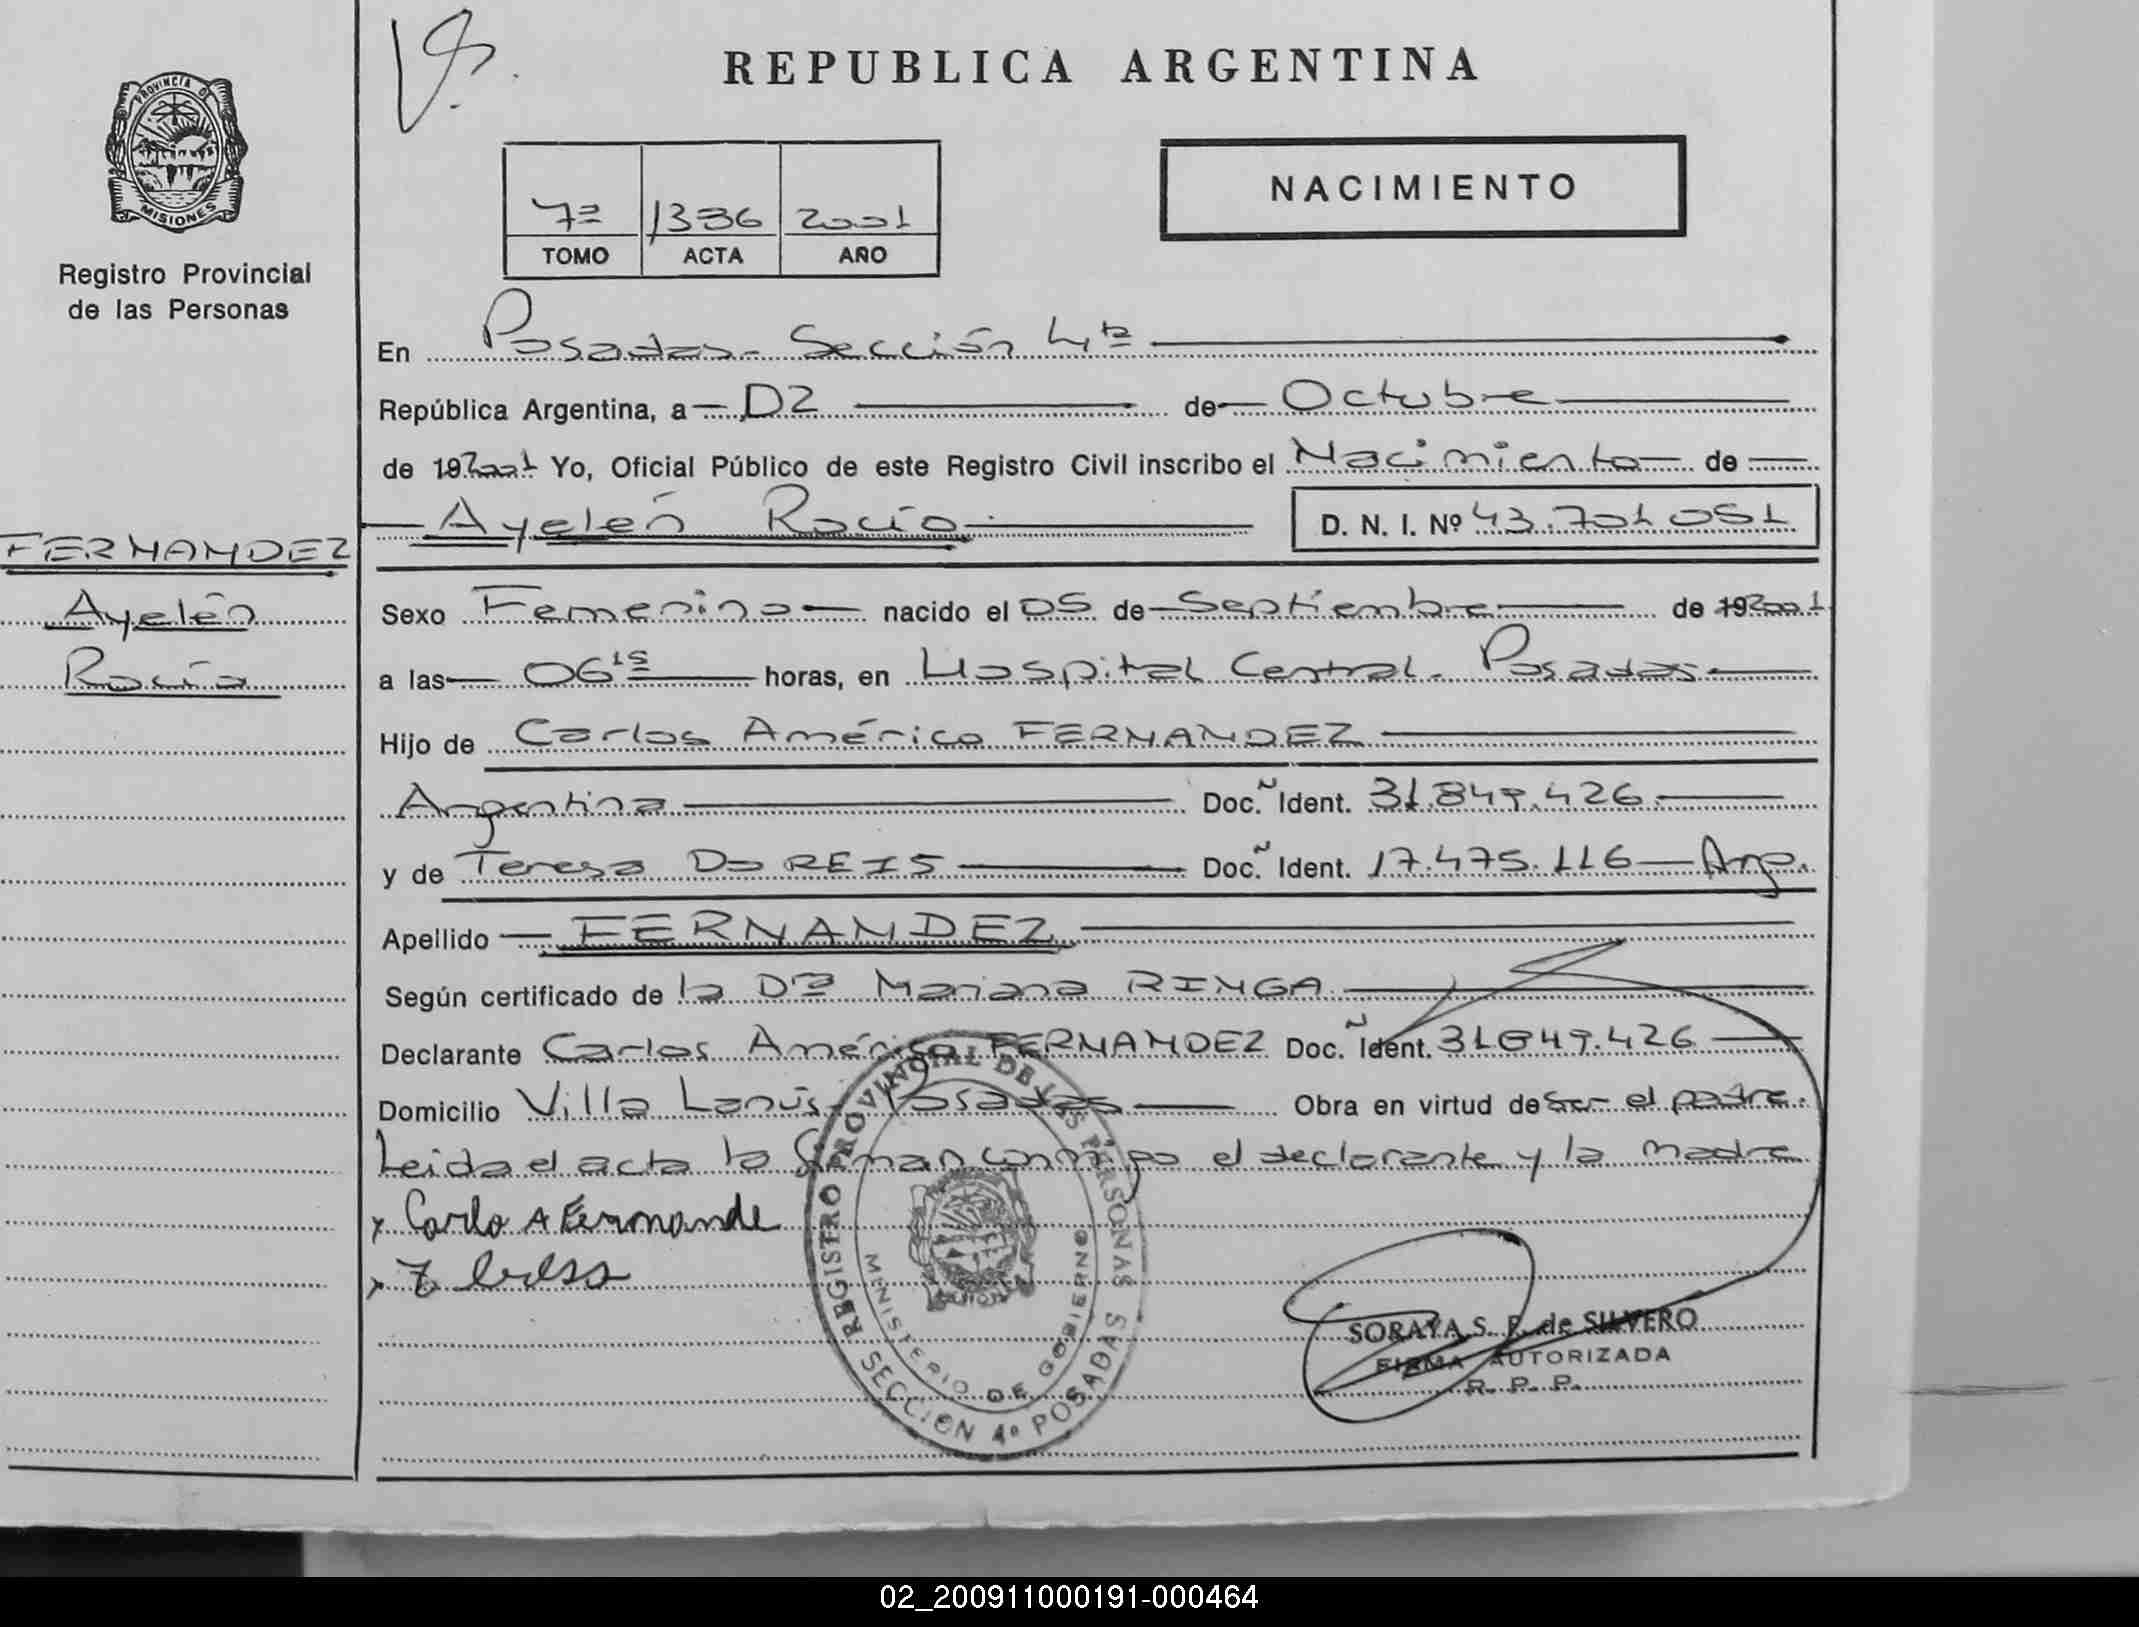 PROVINCIA DE
MISIONES
Registro Provincial
de las Personas
FERNANDEZ
Ayelén
Rocío
REPUBLICA ARGENTINA
NACIMIENTO
7º 1336 2001
TOMO ACTA AÑO
En Posadas - Sección 4ta
República Argentina, a 02 de Octubre
de 192001 Yo, Oficial Público de este Registro Civil inscribo el Nacimiento de
Ayelén Rocío D. N. I. Nº 43.701 051
Sexo Femenino nacido el 05 de Septiembre de 192001
a las 06 15 horas, en Hospital Central. Posadas
Hijo de Carlos Américo FERNANDEZ
Argentina Doc. Ident. 31.849.426
y de Teresa Do REIS Doc. Ident. 17.475.116 Arg.
Apellido FERNANDEZ
Según certificado de la Dra Mariana RINGA
Declarante Carlos Américo FERNANDEZ Doc. Ident. 31849.426
Domicilio Villa Lanús - Posadas Obra en virtud de ser el padre.
Leida el acta la firman conmigo el declarante y la madre
x Carlo A Fernande
x T
REGISTRO PROVINCIAL DE LAS PERSONAS
MINISTERIO DE GOBIERNO
SECCION 4º POSADAS
SORAYA S. F. de SILVERO
FIRMA AUTORIZADA
R. P. P.
02_200911000191-000464